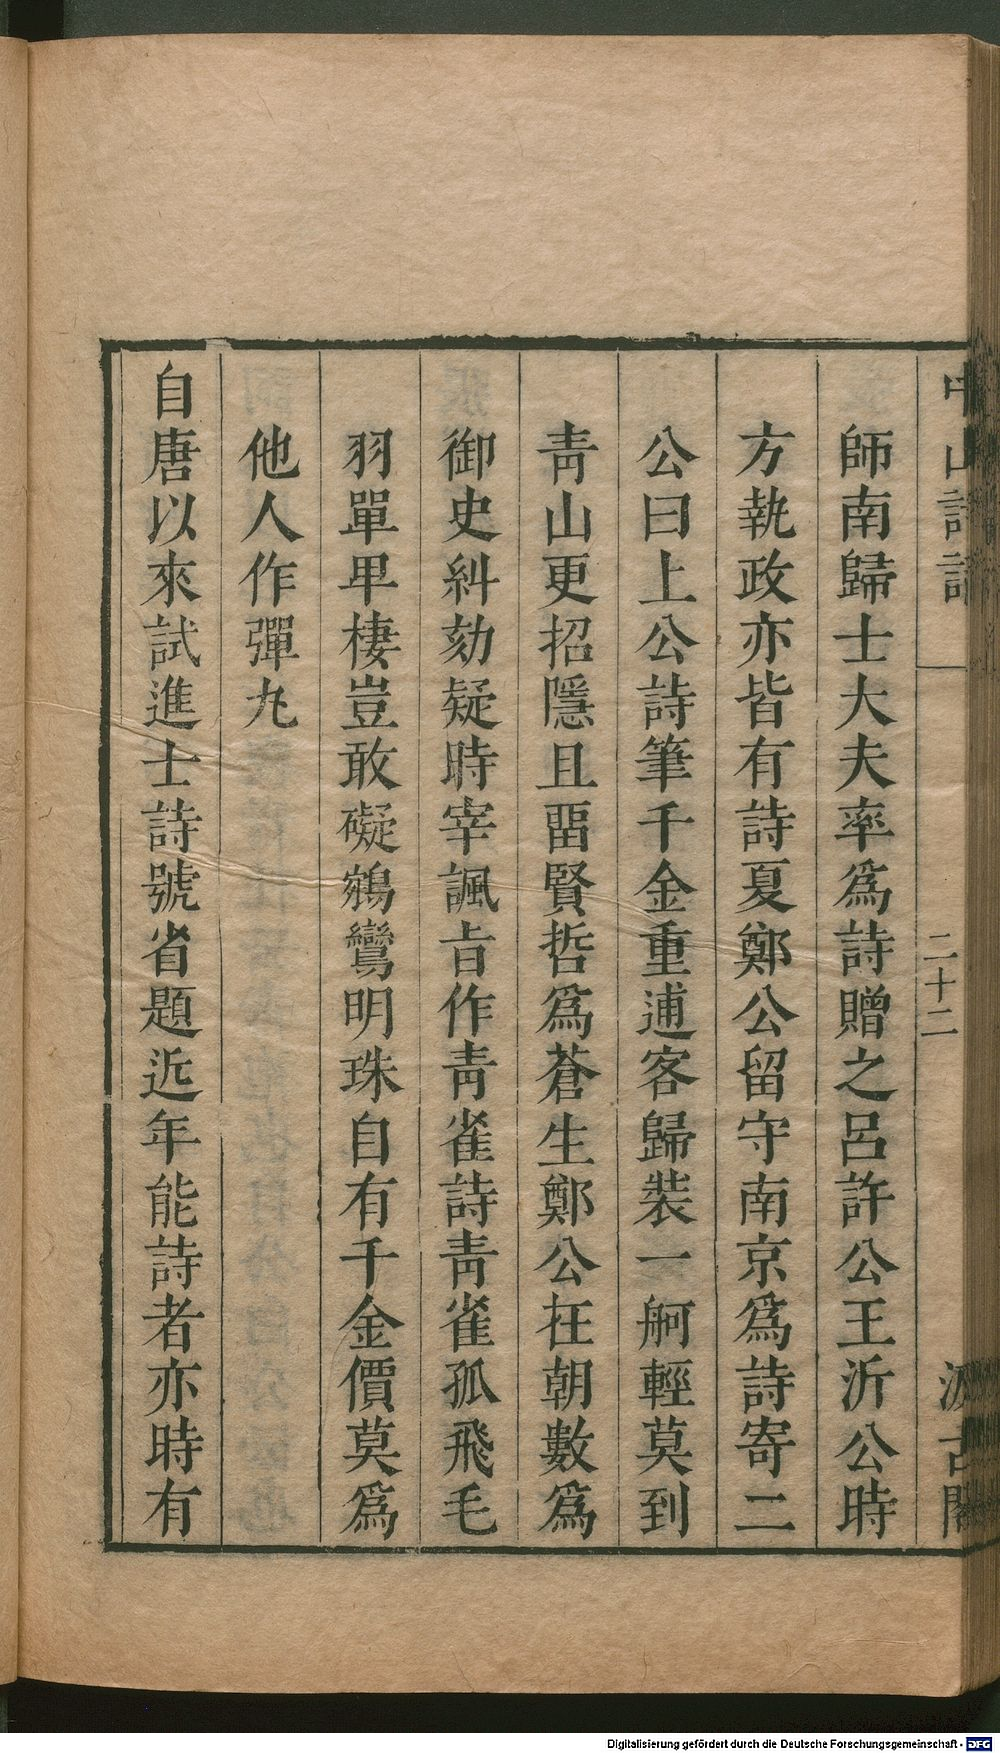 中山詩話
二十二
汲古閣
師南歸士大夫率爲詩贈之呂許公王沂公時
方執政亦皆有詩夏鄭公留守南京爲詩寄二
公曰上公詩筆千金重逋客歸裝一舸輕莫到
靑山更招隱且畱賢哲爲蒼生鄭公在朝數爲
御史糾劾疑時宰諷㫖作靑雀詩靑雀孤飛毛
羽單卑棲豈敢礙鵷鸞明珠自有千金價莫爲
他人作彈丸
自唐以來試進士詩號省題近年能詩者亦時有
Digitalisierung gefördert durch die Deutsche Forschungsgemeinschaft - DFG